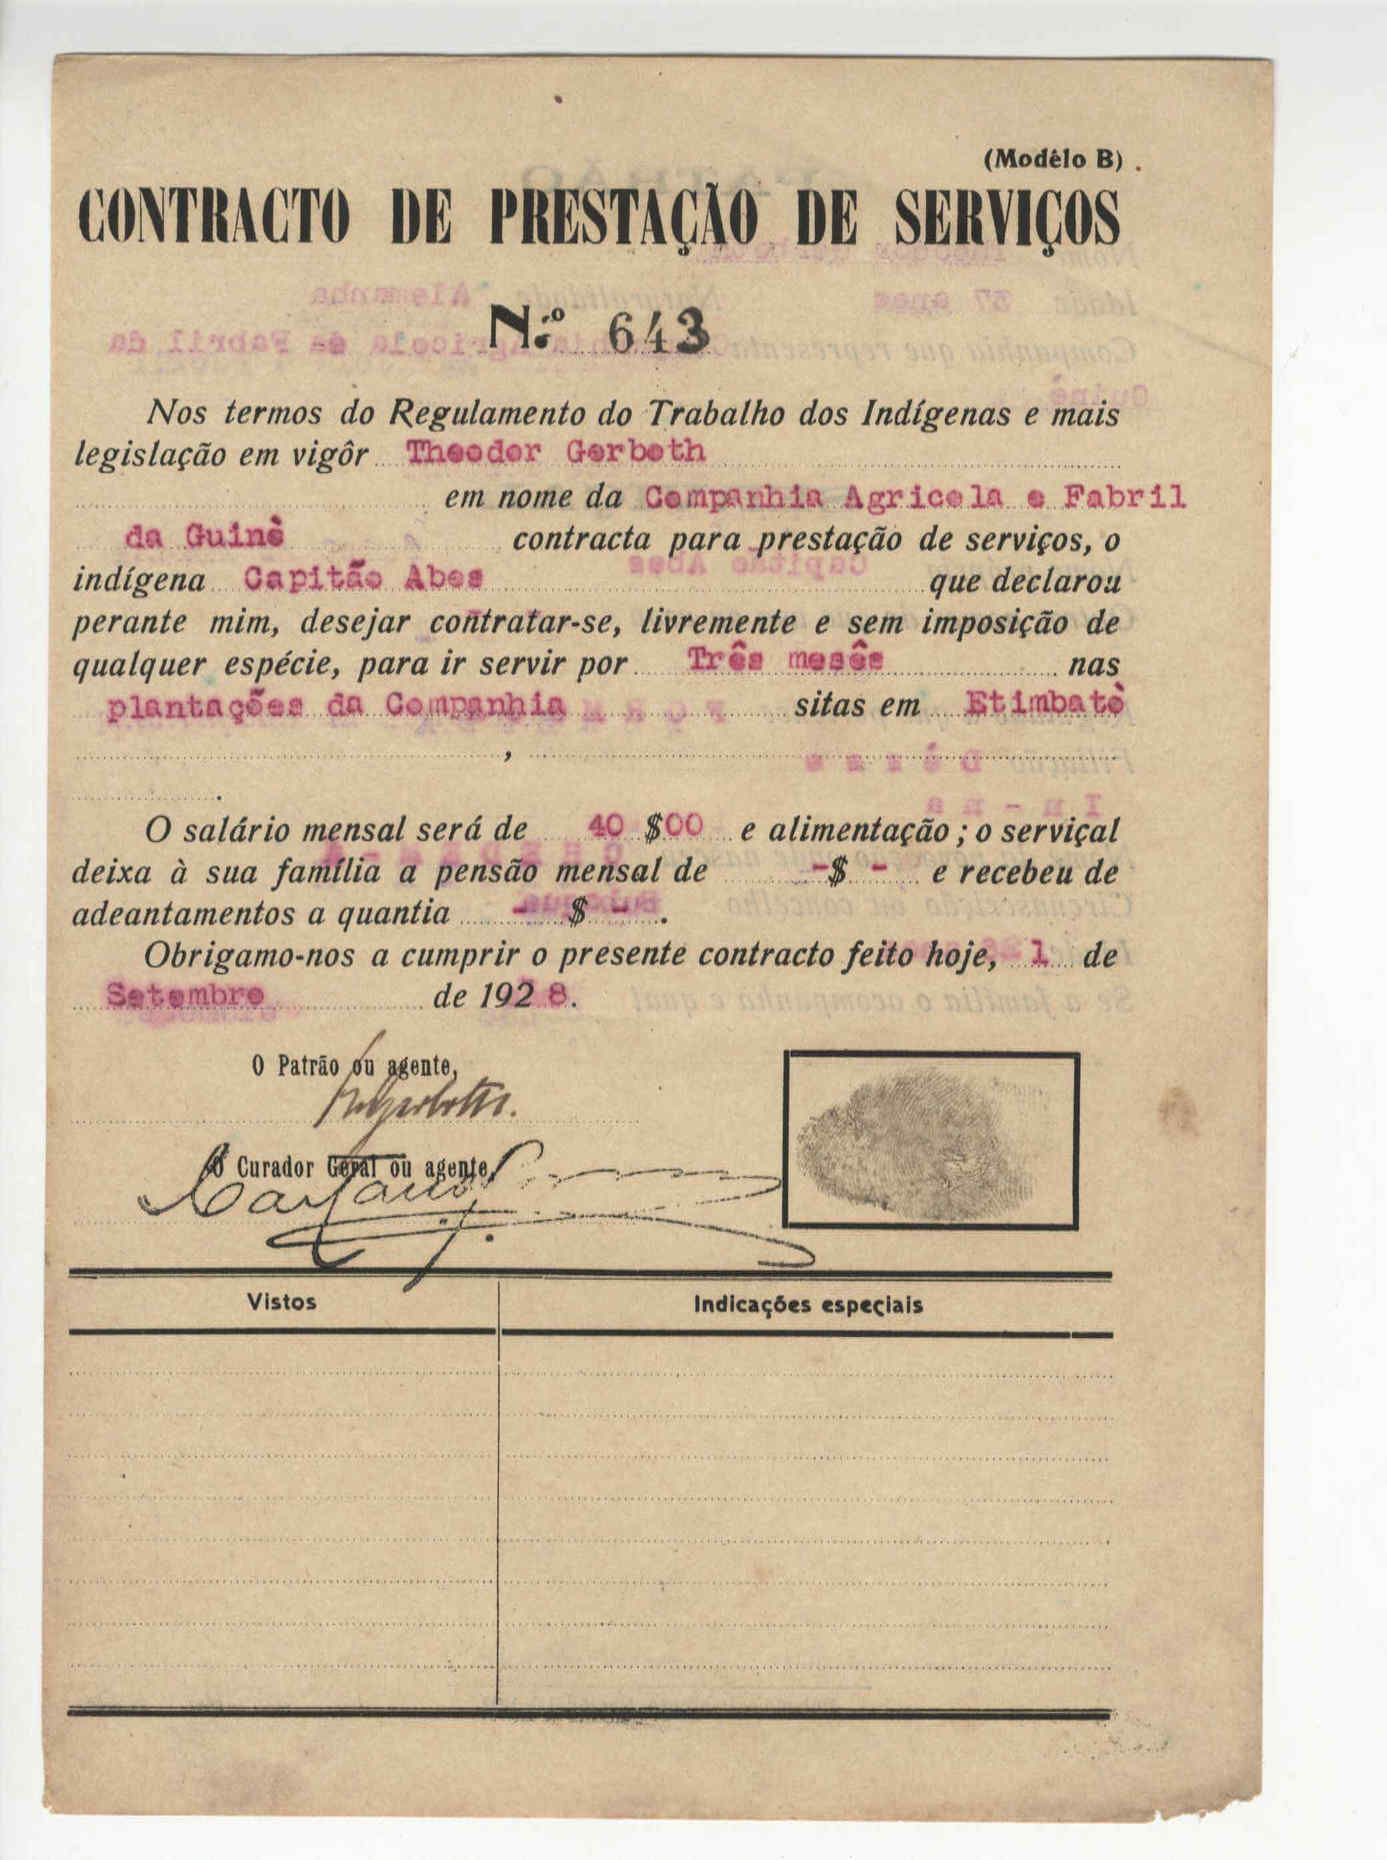 (Modêlo B)
CONTRACTO DE PRESTAÇÃO DE SERVIÇOS
N.º 643
Nos termos do Regulamento do Trabalho dos Indígenas e mais
legislação em vigôr Theodor Gerboth
em nome da Companhia Agricola e Fabril
da Guinè contracta para prestação de serviços, o
indígena Capitão Abes que declarou
perante mim, desejar contratar-se, livremente e sem imposição de
qualquer espécie, para ir servir por Três mesês nas
plantações da Companhia sitas em Etimbatè
,
.
O salário mensal será de 40 $00 e alimentação; o serviçal
deixa à sua família a pensão mensal de -$ - e recebeu de
adeantamentos a quantia - $ - .
Obrigamo-nos a cumprir o presente contracto feito hoje, 1 de
Setembro de 1928.
O Patrão ou agente,
O Curador Geral ou agente,
Vistos Indicações especiais